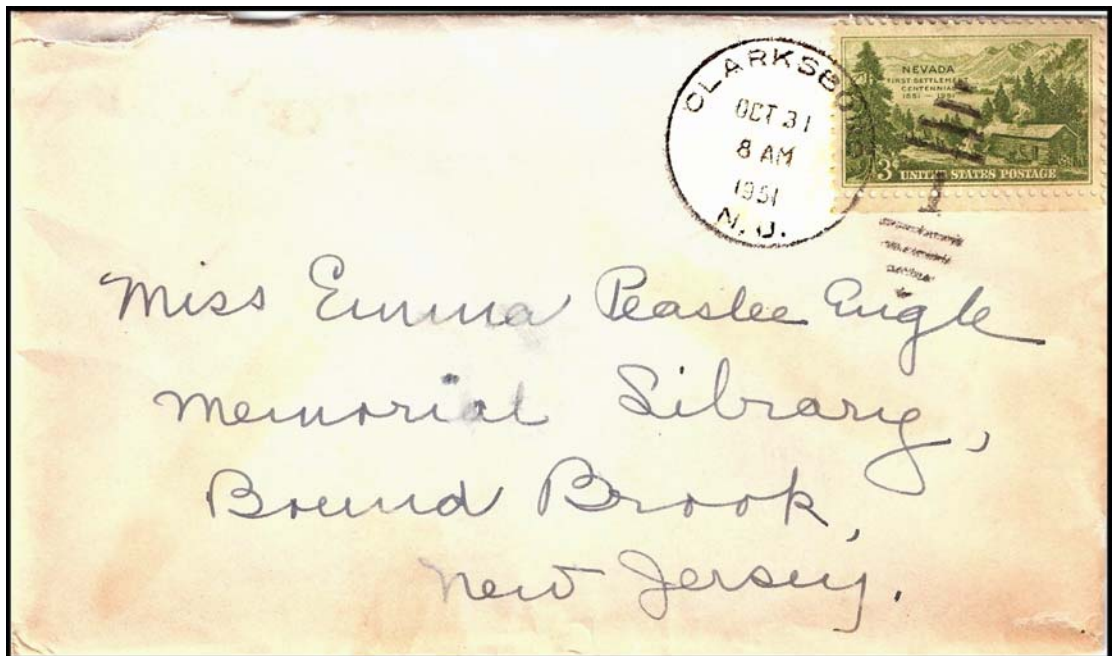 CLARKSBO
OCT 31
8 AM
1951
N.J.
NEVADA
FIRST SETTLEMENT
CENTENNIAL
1851 – 1951
3¢ UNITED STATES POSTAGE
Miss Emma Peaslee Engle
Memorial Library,
Bound Brook,
New Jersey.